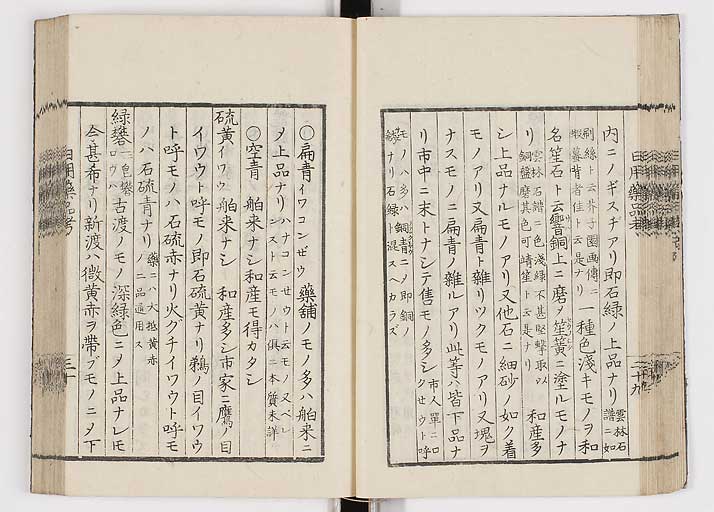 内ニノギスヂアリ即石緑ノ上品ナリ雲林石譜ニ如
刷絲ト云芥子園画傳ニ蝦蟇背者佳ト云是ナリ一種色淺キモノヲ和
名笙石ト云響銅上ニ磨ノ笙簧ニ塗ルモノナ
リ雲林石譜ニ色淺緑不甚堅撃取以銅盤磨其色可靖笙ト云是ナリ和産多
シ上品ナルモノアリ又他石ニ細砂ノ如ク着
モノアリ又扁青ト雜リツクモノアリ又塊ヲ
ナスモノニ扁青ノ雜ルアリ此等ハ皆下品ナ
リ市中ニ末トナシテ售モノ多シ市人單ニロクセウト呼
モノハ多ハ銅青ニノ即銅ノ緑ナリ石緑ト混スベカラズ
〇扁青イワコンゼウ藥舖ノモノ多ハ舶来ニ
ノ上品ナリハナコンゼウト云モノ又ベレンスト云モノハ俱ニ本質未詳
〇空青 舶来ナシ和産モ得カタシ
硫黄イワウ舶来ナシ 和産多シ市家ニ鷹ノ目
イワウト呼モノ即石硫黄ナリ鵜ノ目イワウ
ト呼モノハ石硫赤ナリ火グチイワウト呼モ
ノハ石硫青ナリ藥ニハ大抵黄赤ノ二品通用ス
緑礬ロウハ古渡ノモノ深緑色ニノ上品ナレ𪜈
今甚希ナリ新渡ハ微黄赤ヲ帶ブモノニノ下
二十九
三十